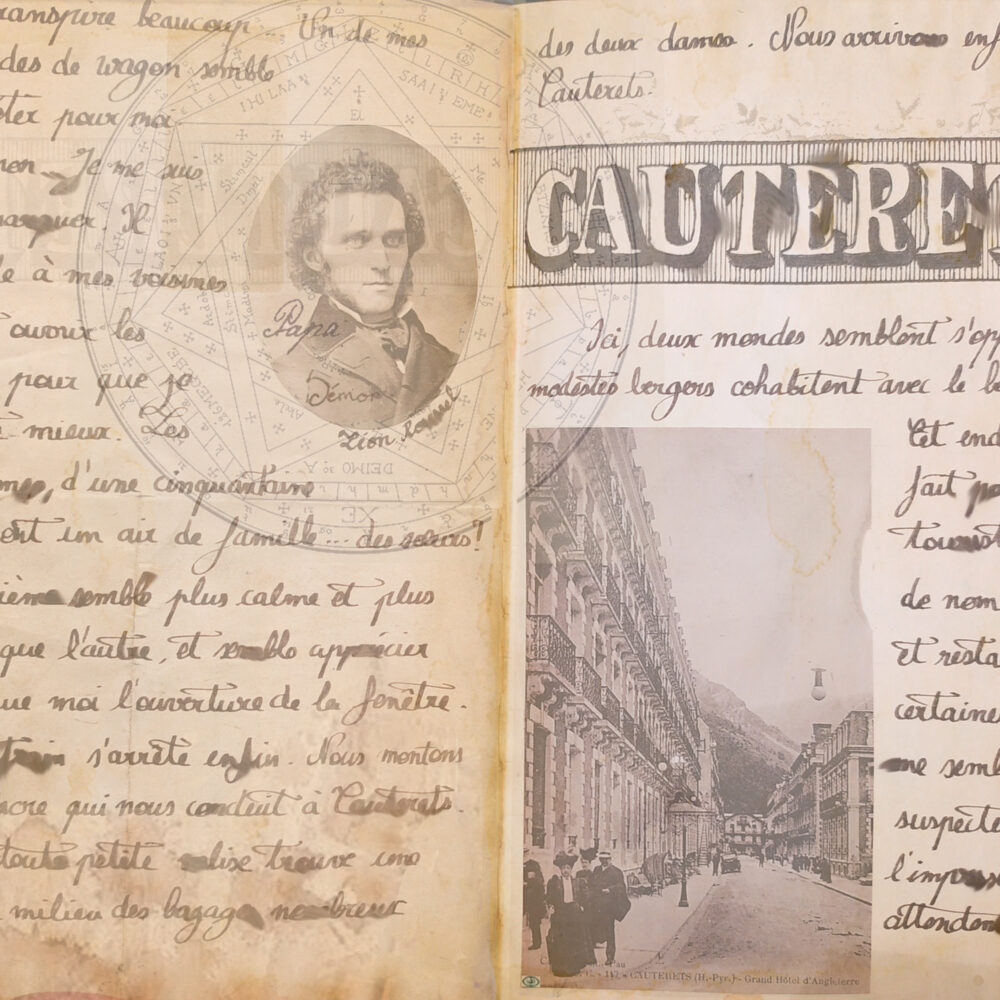 transpire beaucoup... Un de mes
des de wagon semble
ter pour moi
non. Je me suis
marquer. Il
le à mes voisines
avoir les
pour que je
mieux. Les
mes, d'une cinquantaine
ont un air de famille... des sœurs?
ième semble plus calme et plus
que l'autre, et semble apprécier
que moi l'ouverture de la fenêtre.
train s'arrête enfin. Nous montons
acre qui nous conduit à Cauterets.
toute petite valise trouve une
milieu des bagages nombreux
Papa
Démon
Léon
DEIMO
des deux dames. Nous arrivons enf
Cauterets.
CAUTERET
Ici, deux mondes semblent s'opp
modestes bergers cohabitent avec le b
Cet end
fait pa
tourist
de nom
et resta
certaine
me sembl
suspecte
l'impress
attendent
147. - CAUTERETS (H.-Pyr.) - Grand Hôtel d'Angleterre